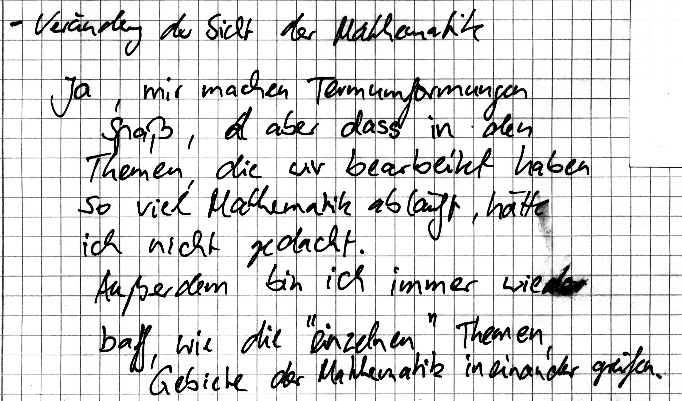 - Veränderung der Sicht der Mathematik
Ja, mir machen Termumformungen
Spaß, aber dass in den
Themen, die wir bearbeitet haben
so viel Mathematik abläuft, hätte
ich nicht gedacht.
Außerdem bin ich immer wieder
baff, wie die "einzelnen" Themen,
Gebiete der Mathematik ineinander greifen.